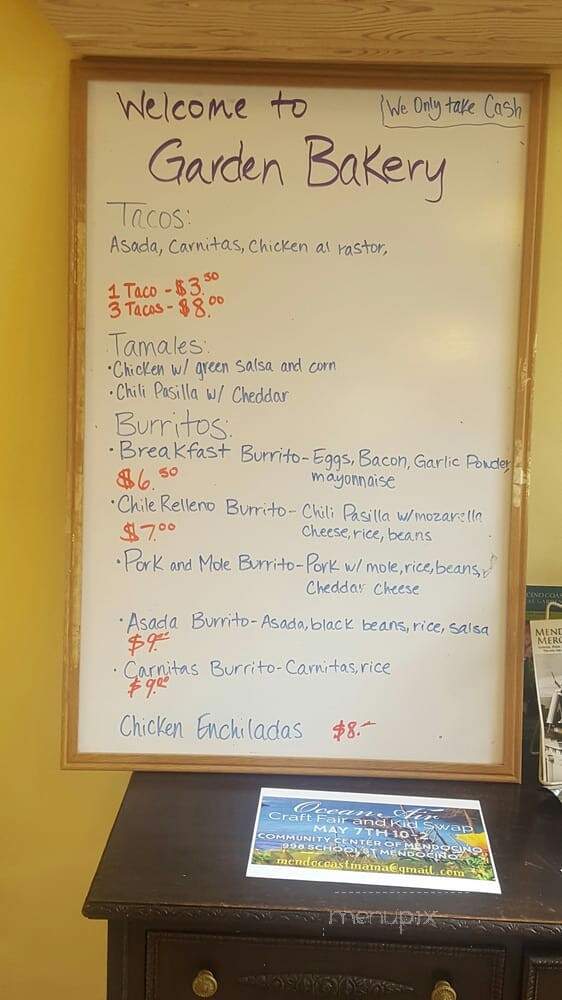 Welcome to
{We Only take Cash
Garden Bakery
Tacos:
Asada, Carnitas, Chicken al rastor,
1 Taco - $3.50
3 Tacos - $8.00
Tamales:
• Chicken w/ green salsa and corn
• Chili Pasilla w/ Cheddar
Burritos:
• Breakfast Burrito - Eggs, Bacon, Garlic Powder,
mayonnaise
$6.50
• Chile Relleno Burrito - Chili Pasilla w/mozarella
cheese, rice, beans
$7.00
• Pork and Mole Burrito - Pork w/ mole, rice, beans,
Cheddar cheese
• Asada Burrito - Asada, black beans, rice, salsa
$9.-
• Carnitas Burrito - Carnitas, rice
$9.00
Chicken Enchiladas $8.-
Ocean Air
Craft Fair and Kid Swap
MAY 7TH 10-2
COMMUNITY CENTER OF MENDOCINO
998 SCHOOL ST MENDOCINO
mendocoastmama@gmail.com
menupix